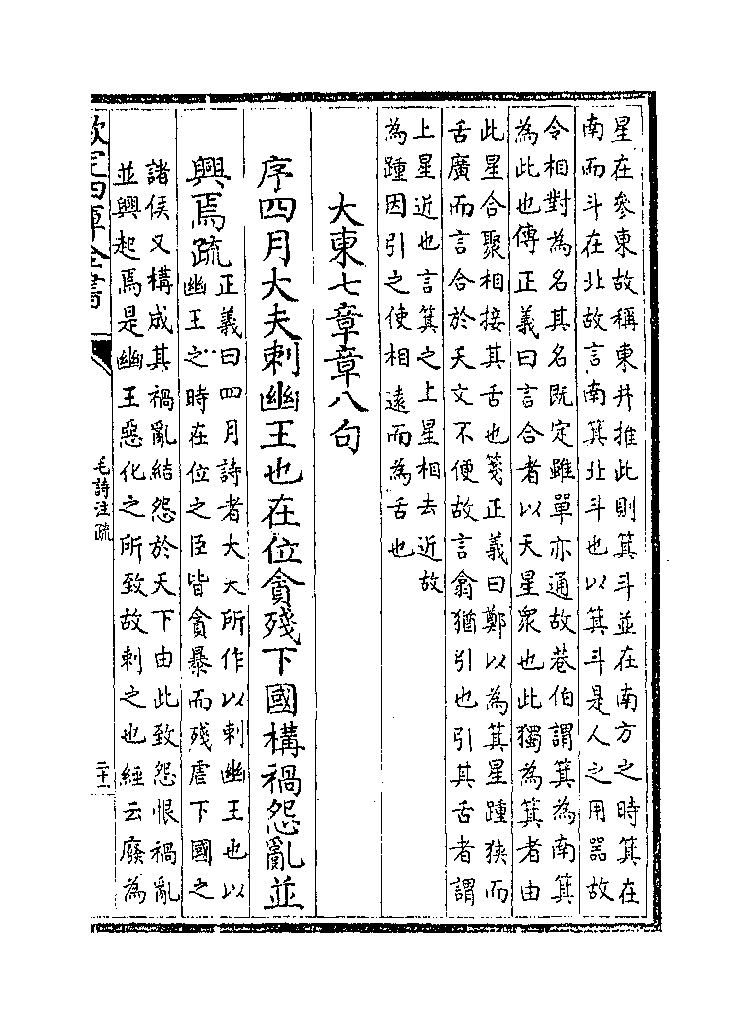 星在參東故稱東井推此則箕斗並在南方之時箕在
南而斗在北故言南箕北斗也以箕斗是人之用器故
令相對為名其名既定雖單亦通故巷伯謂箕為南箕
為此也傳正義曰言合者以天星衆也此獨為箕者由
此星合聚相接其舌也箋正義曰鄭以為箕星踵狹而
舌廣而言合於天文不便故言翕猶引也引其舌者謂
上星近也言箕之上星相去近故
為踵因引之使相遠而為舌也
大東七章章八句
序四月大夫刺幽王也在位貪殘下國構禍怨亂並
興焉疏
正義曰四月詩者大夫所作以刺幽王也以
幽王之時在位之臣皆貪暴而殘虐下國之
諸侯又構成其禍亂結怨於天下由此致怨恨禍亂
並興起焉是幽王惡化之所致故刺之也經云廢為
欽定四庫全書
毛詩注疏
二十一